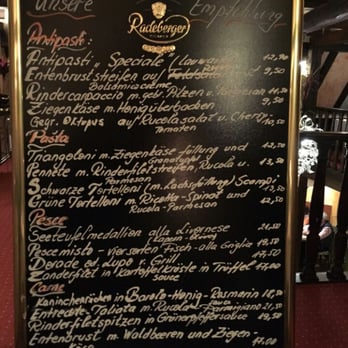 Unsere Empfehlung
Radeberger
PILSNER
Antipasti:
Antipasti u. Speciale
Entenbrust streifen auf Feldsalat 9,50
Balsamicocreme
Rinder carpaccio m. geb. Pilzen u. Parmesan
Ziegenkäse m. Honig überbacken 9,50
Gegr. Oktopus auf Rucolasalat u. Cherry
Tomaten
Pasta
Triangoloni m. Ziegenkäse füllung und
Granatapfel
Pennete m. Rinderfiletstreifen, Rucola u.
Parmesan
Schwarze Tortelloni (m. Lachsfüllung) Scampi
Grüne Tortelloni m. Ricotta-Spinat und
Rucola-Parmesan
Pesce
Seeteufelmedallion alla Livornese
Pesce misto - vier sorten Fisch - alla Griglia
Dorade od Lupo v. Grill
Zanderfilet in Kartoffelkruste in Trüffel 17,00
sauce
Carne
Kaninchenrücken in Barolo-Honig-Rosmarin 18,50
Entrecote Tabiata m. Rucola
Rinderfiletspitzen in Grünerpfeffersauce 19,50
Entenbrust m. Waldbeeren und Ziegen- 17,00